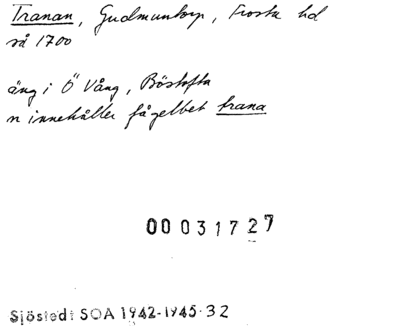 Tranan, Gudmuntorp, Frosta hd
så 1700
äng i Ö Vång, Böstofta
n innehåller fågelbet trana
00 031727
Sjöstedt SOA 1942-1945·32